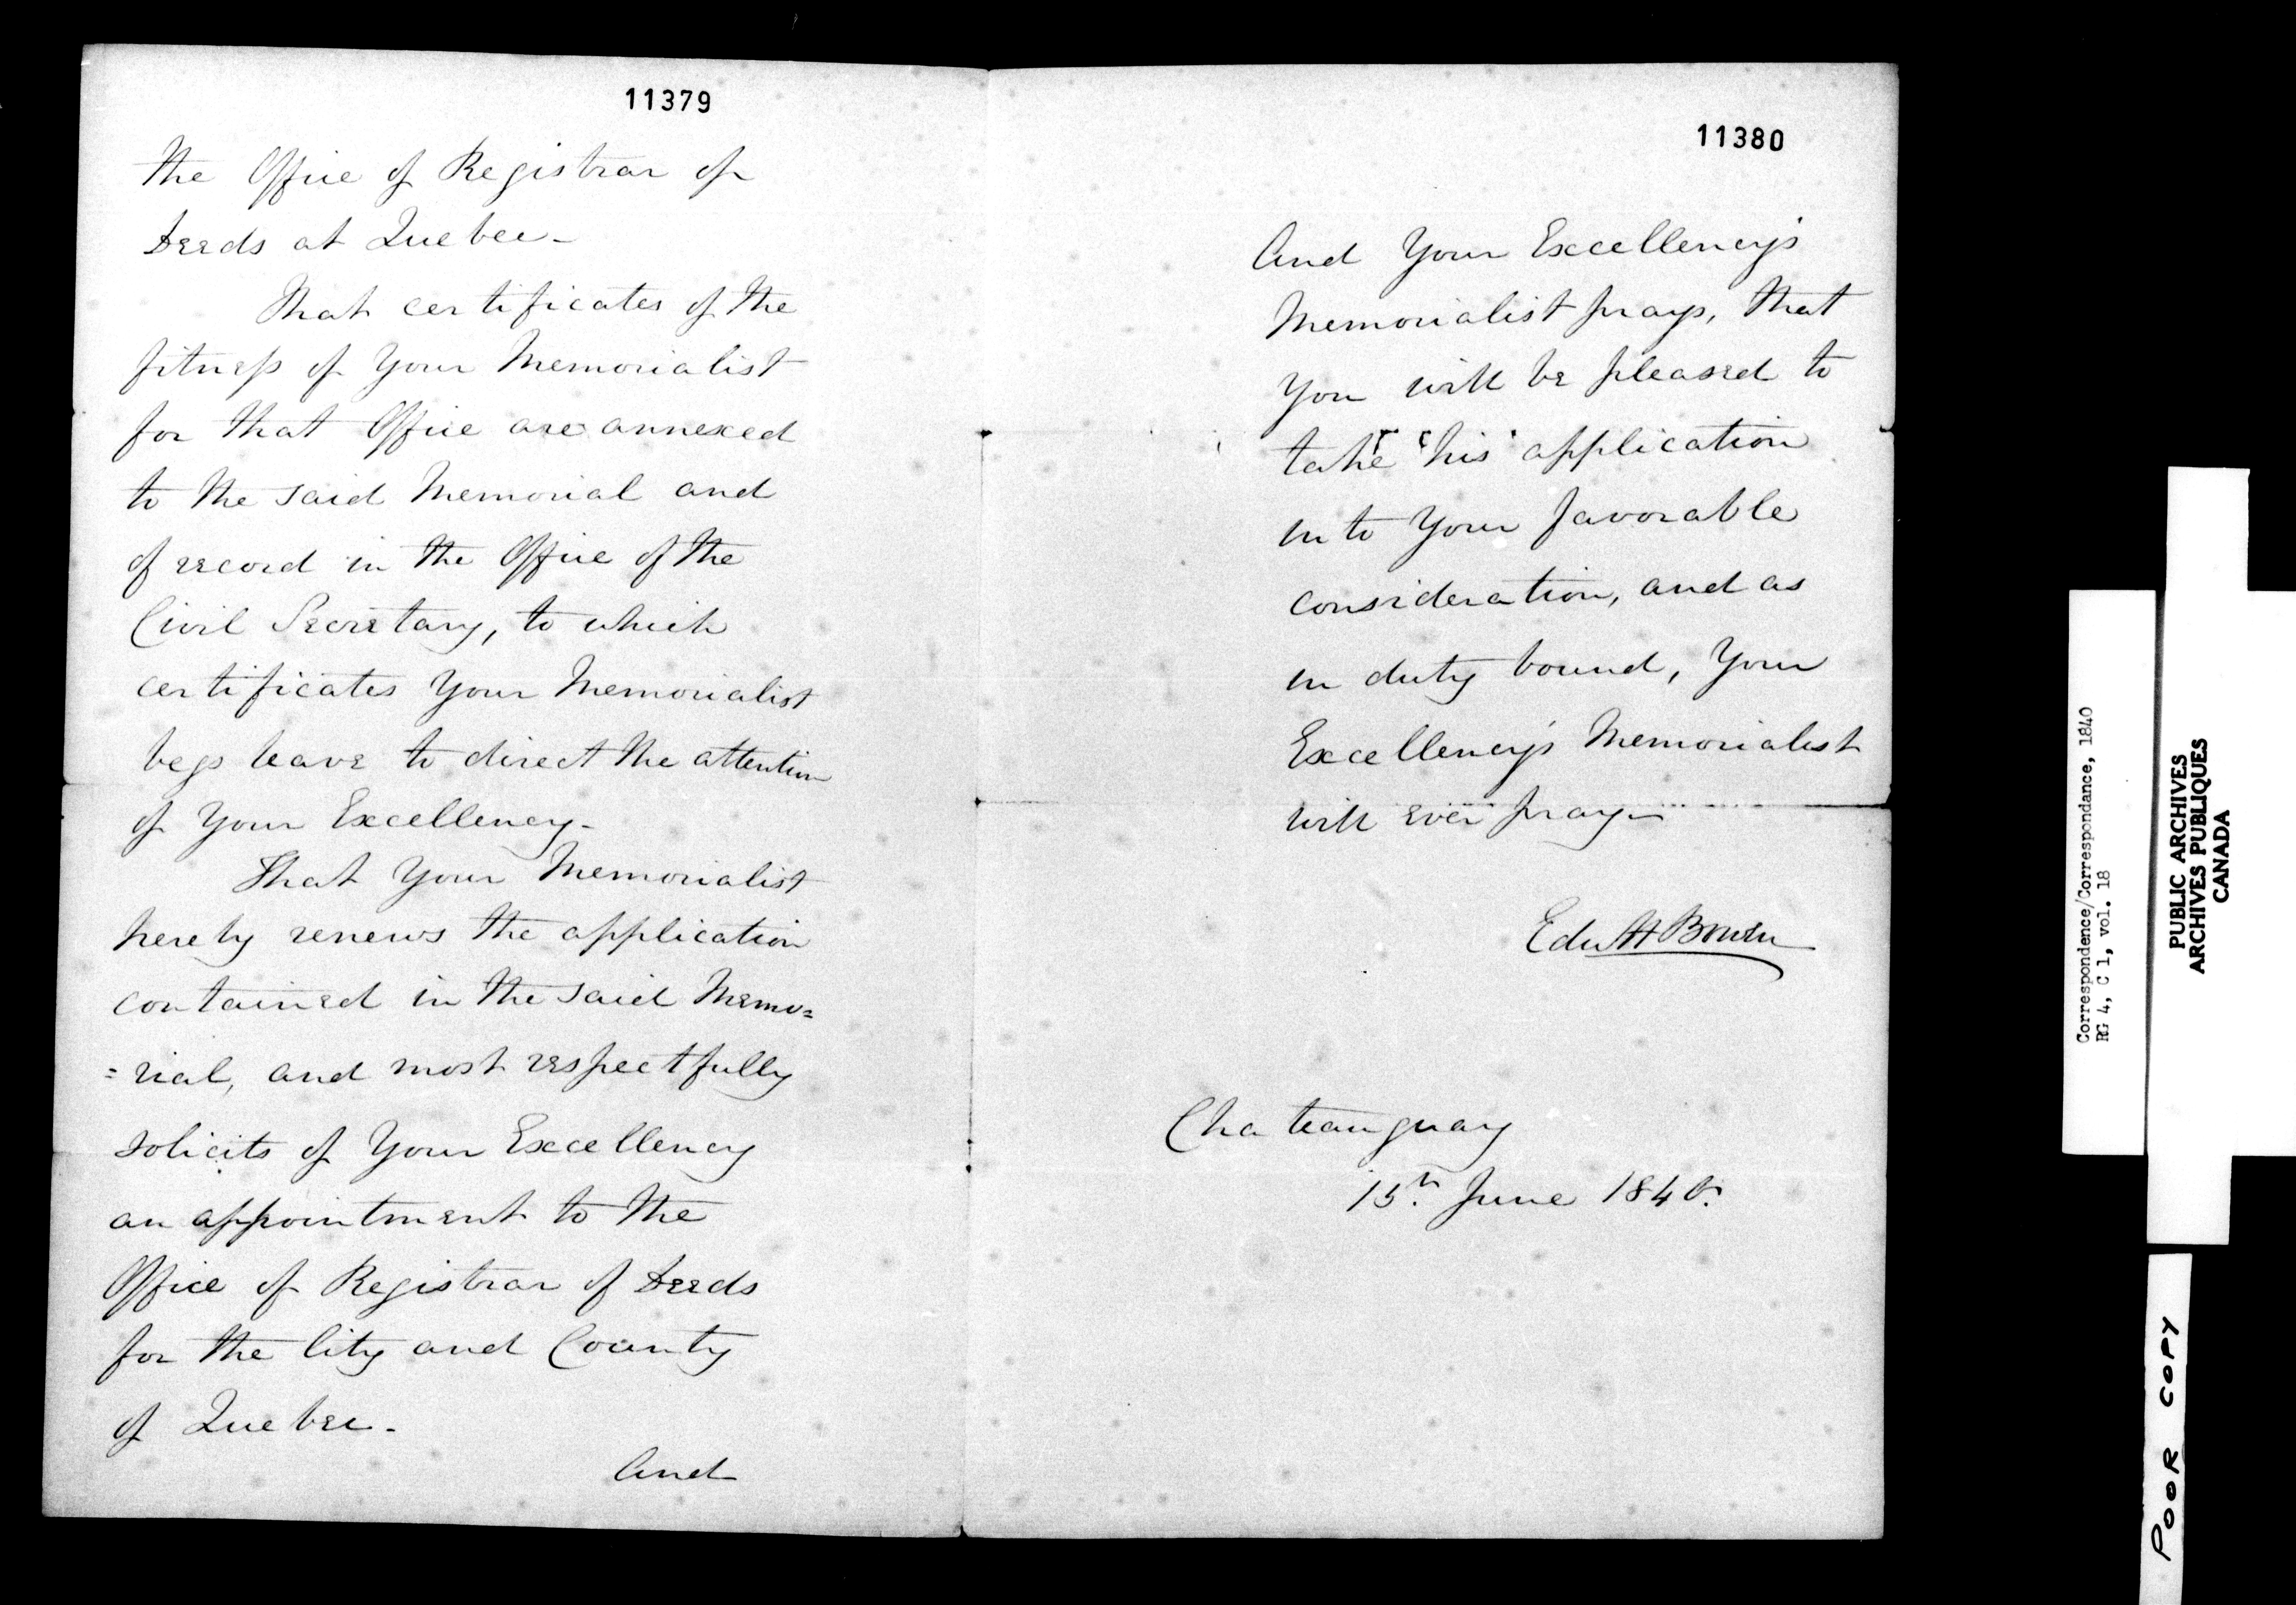 11379
the Office of Registrar of
Deeds at Quebec -
That certificates of the
fitness of Your Memorialist
for that Office are annexed
to the said Memorial and
of record in the Office of the
Civil Secretary, to which
certificates Your Memorialist
begs leave to direct the attention
of Your Excellency -
That Your Memorialist
hereby renews the application
contained in the said Memo=
=rial, and most respectfully
solicits of Your Excellency
an appointment to the
Office of Registrar of Deeds
for the City and County
of Quebec -
And
11380
And Your Excellency's
Memorialist prays, that
You will be pleased to
take his application
into Your favorable
consideration, and as
in duty bound, Your
Excellency's Memorialist
will ever pray -
Edw H Bowen
Chateauguay
15th June 1840.
Correspondence/Correspondance, 1840
RG 4, C 1, vol. 18
PUBLIC ARCHIVES
ARCHIVES PUBLIQUES
CANADA
POOR COPY